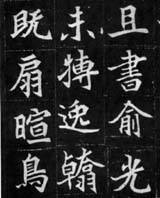 且書俞光
未逸翰
既扇暄鳥